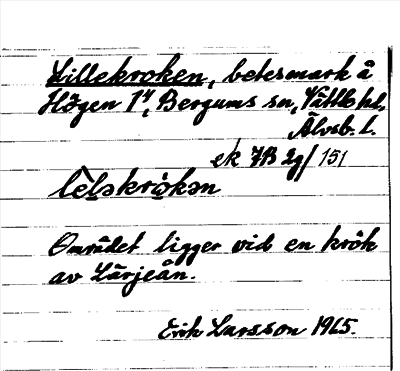 Lillekroken, betesmark å
Högen 1⁴, Bergums sn, Vättle hd,
Älvsb. l.
ek 7B 2g/151
lìl̥əkrò̥kən
Området ligger vid en krök
av Lärjeån.
Erik Larsson 1965.